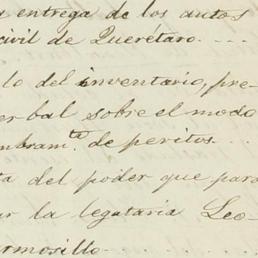 entrega de los autos
civil de Querétaro
lo del inventario, pre-
bal sobre el modo
bram.to de peritos
ta del poder que para
la legataria Leo-
rmosillo